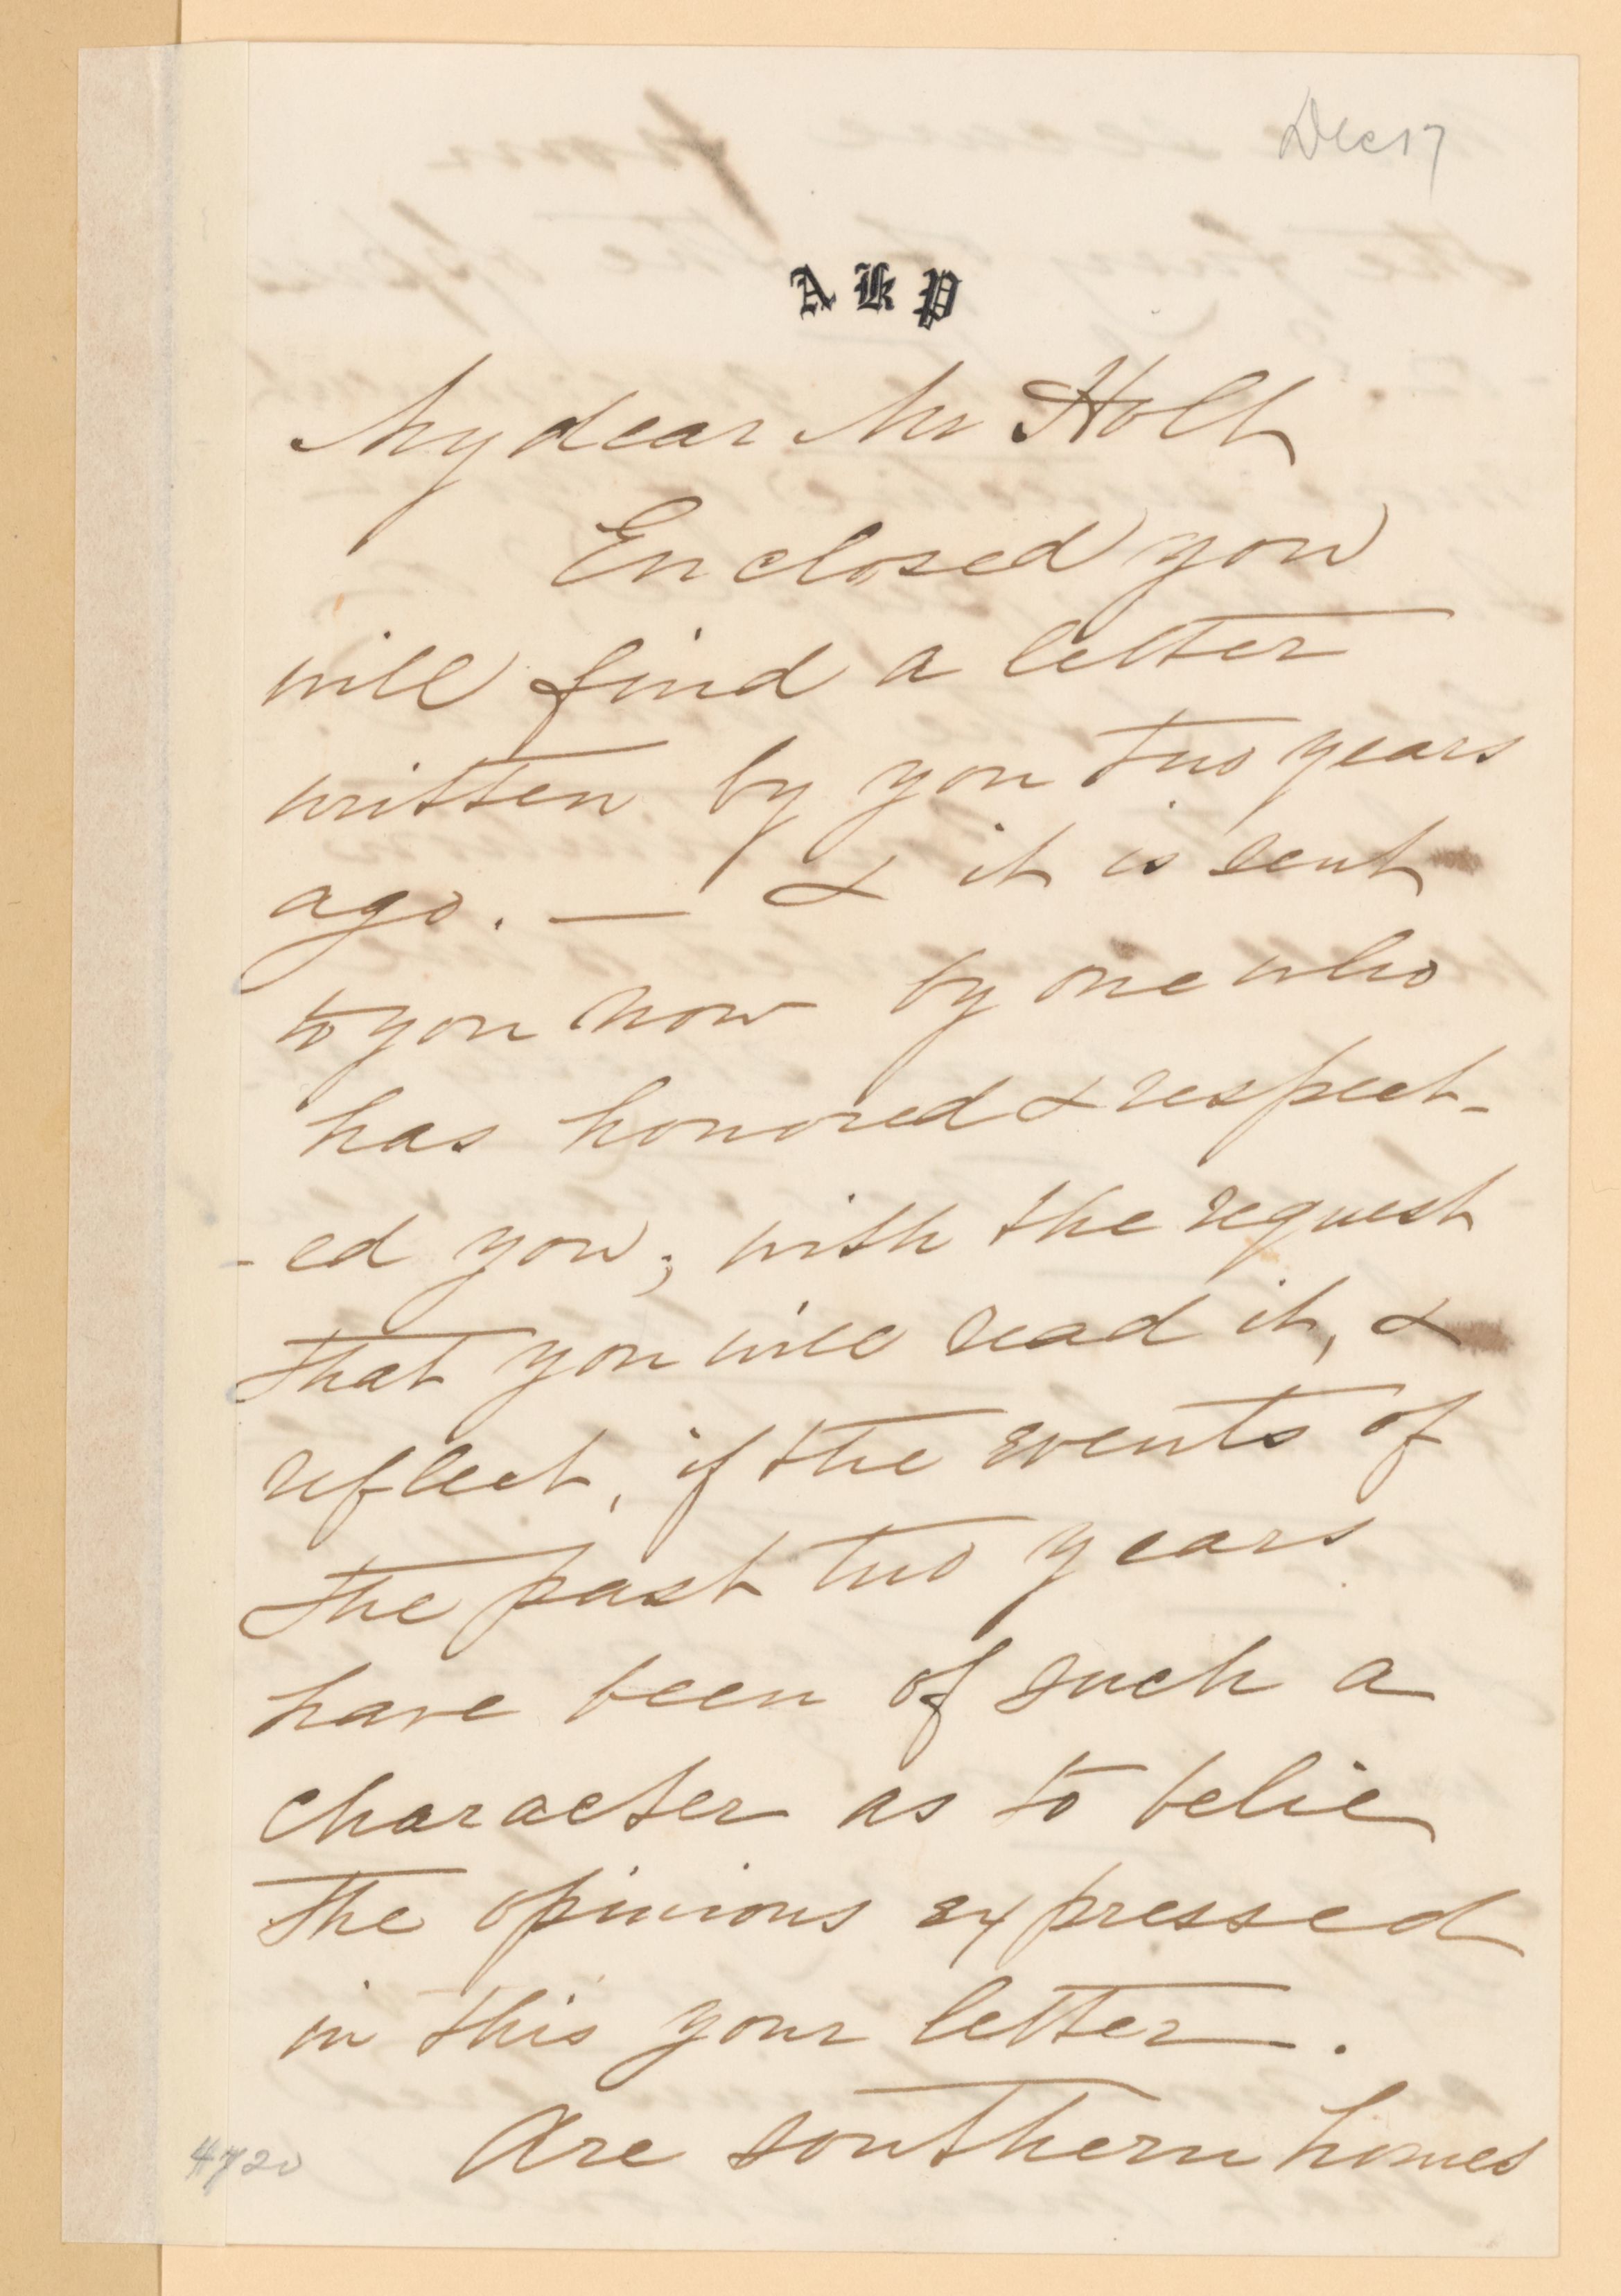 Dec 17
A K P
My dear Mr Holt
Enclosed you
will find a letter
written by you two years
ago. — & it is sent
to you now by one who
has honored & respect-
-ed you; with the request
that you will read it, &
reflect, if the events of
the past two years
have been of such a
character as to belie
the opinions expressed
in this your letter.
Are southern homes
4720